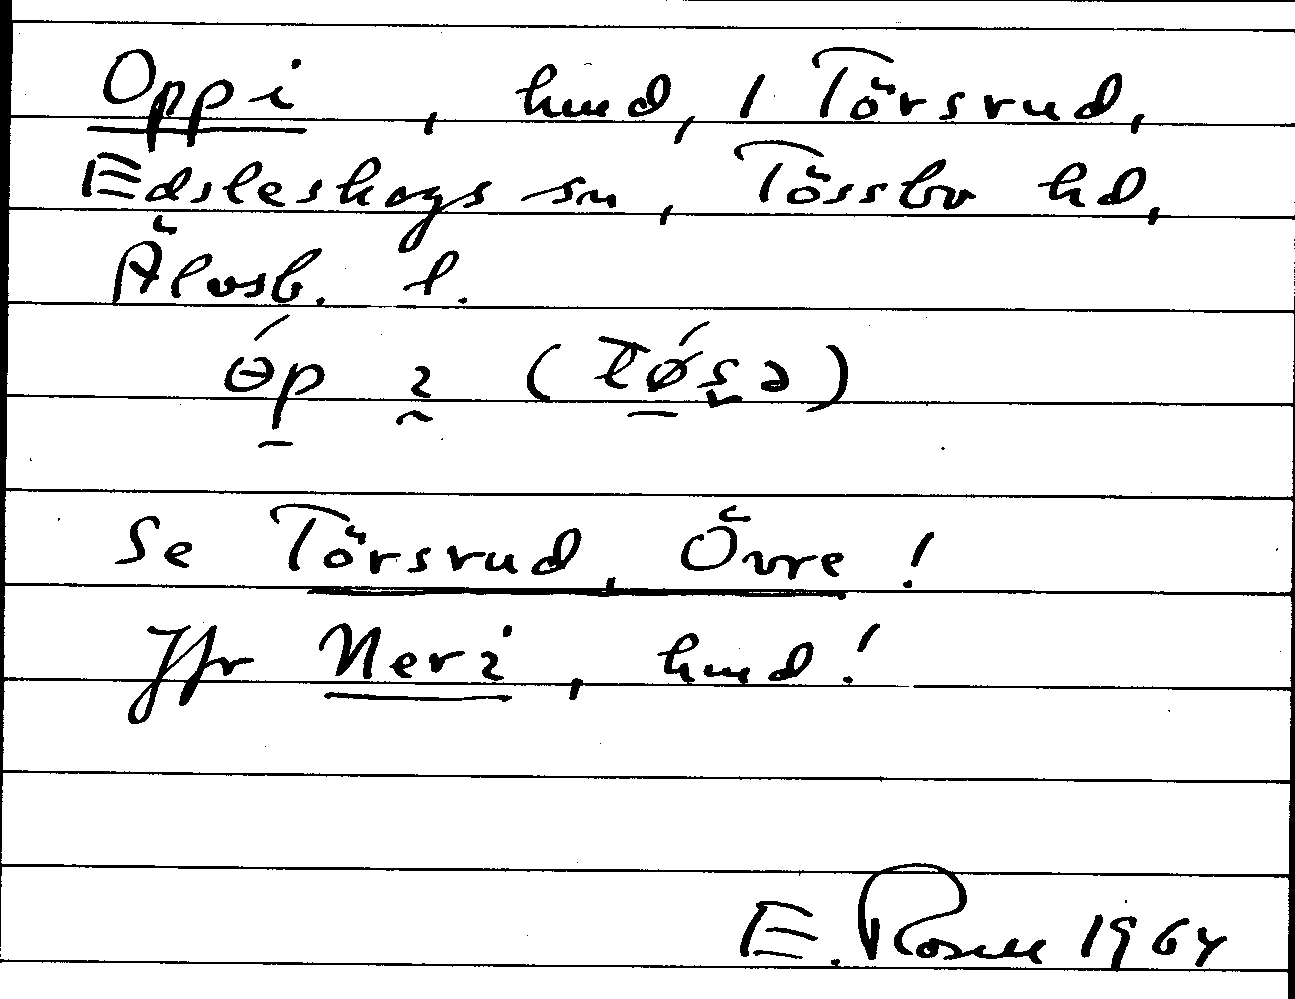 Oppi, hmd, 1 Törsrud,
Edsleskogs sn, Tössbo hd,
Älvsb. l.
Se Törsrud, Övre!
Jfr Neri, hmd!
E. Rosell 1964